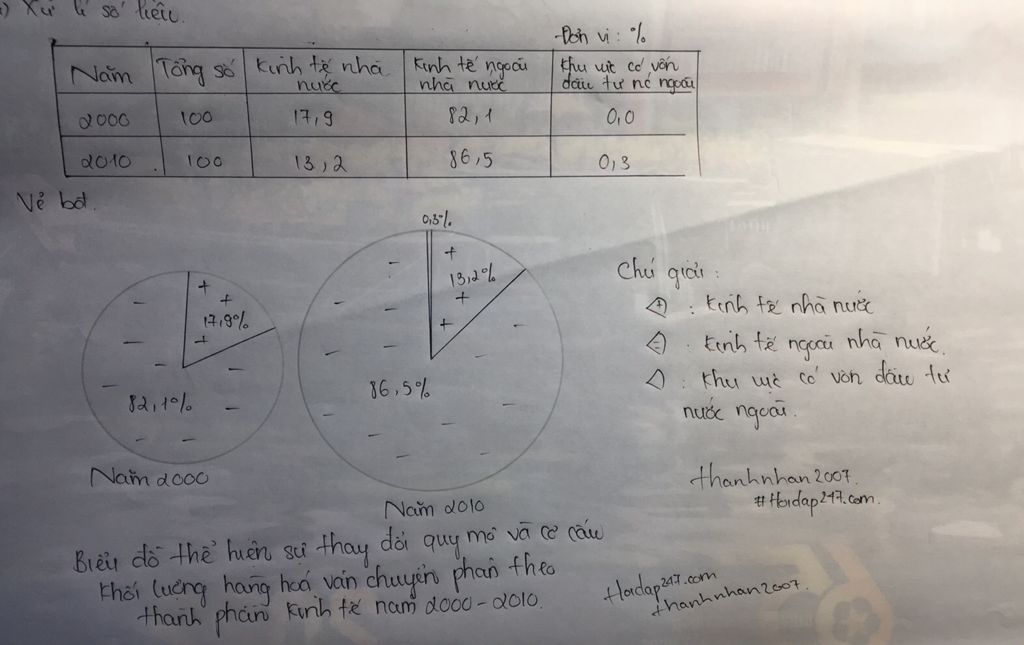 ) Xử lí số liệu.
Đơn vị : %
Năm Tổng số Kinh tế nhà nước Kinh tế ngoài nhà nước Khu vực có vốn đầu tư nc ngoài
2000 100 17,9 82,1 0,0
2010 100 13,2 86,5 0,3
Vẽ bđ.
0,3%
13,2%
17,9%
86,5%
82,1%
Năm 2000
Năm 2010
Chú giải :
: Kinh tế nhà nước
: Kinh tế ngoài nhà nước.
: Khu vực có vốn đầu tư
nước ngoài.
thanhnhan2007.
#Hoidap247.com.
Biểu đồ thể hiện sự thay đổi quy mô và cơ cấu
khối lượng hàng hoá vận chuyển phân theo
thành phần kinh tế năm 2000-2010.
Hoidap247.com
thanhnhan2007.